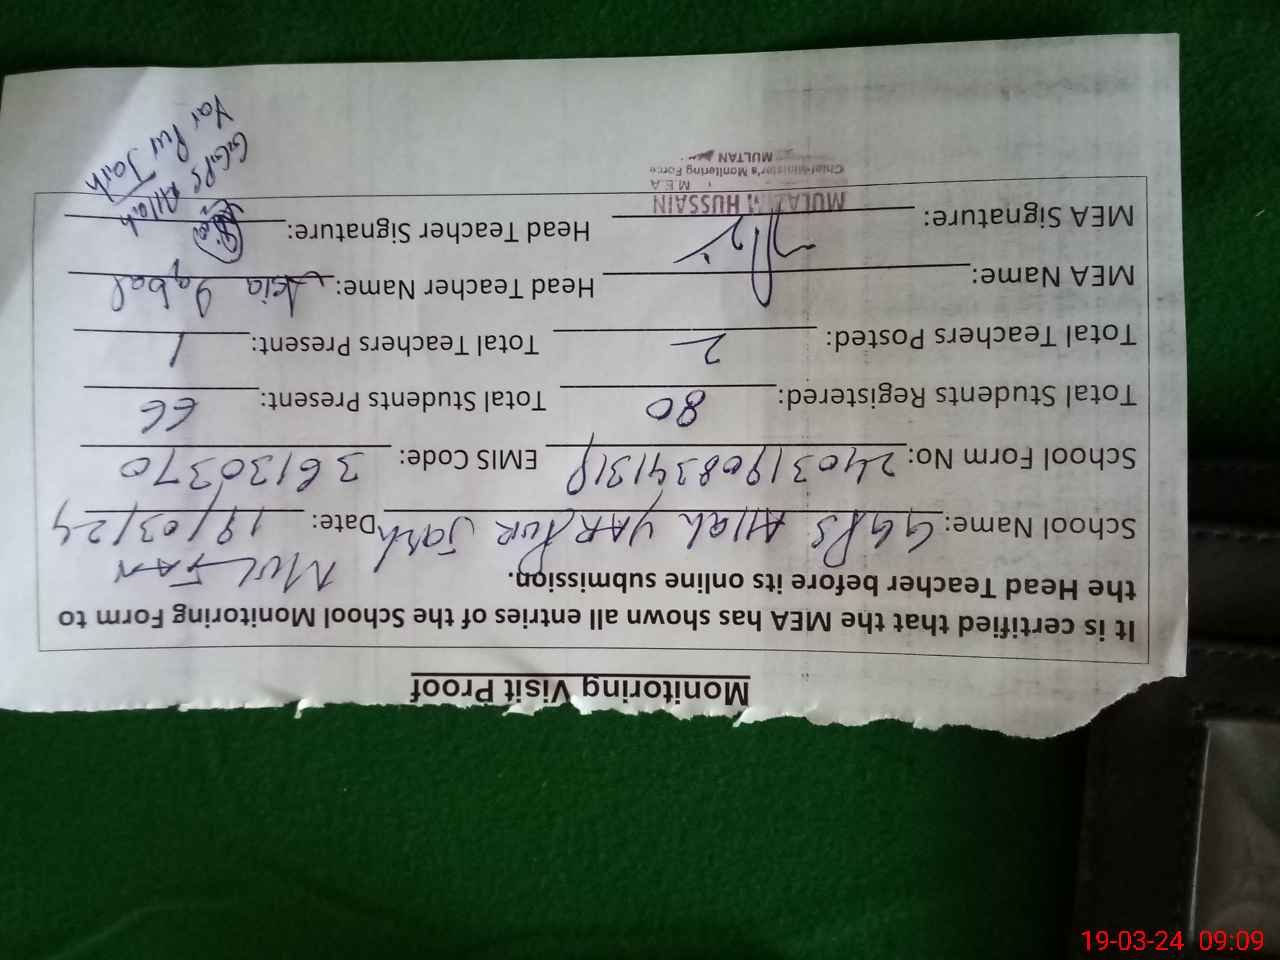 Monitoring Visit Proof
It is certified that the MEA has shown all entries of the School Monitoring Form to
the Head Teacher before its online submission.
MULTAN
School Name: GGPS Allah YAR PUR Jash Date: 19/03/24
School Form No: 24031908341319 EMIS Code: 36130370
Total Students Registered: 80 Total Students Present: 66
Total Teachers Posted: 2 Total Teachers Present: 1
MEA Name: Head Teacher Name: Asia Iqbal
MEA Signature: Head Teacher Signature:
HUSSAIN
M.E.A
Chief Minister's Monitoring Force
MULTAN
GGPS Allah
Yar Pur Jash
19-03-24 09:09